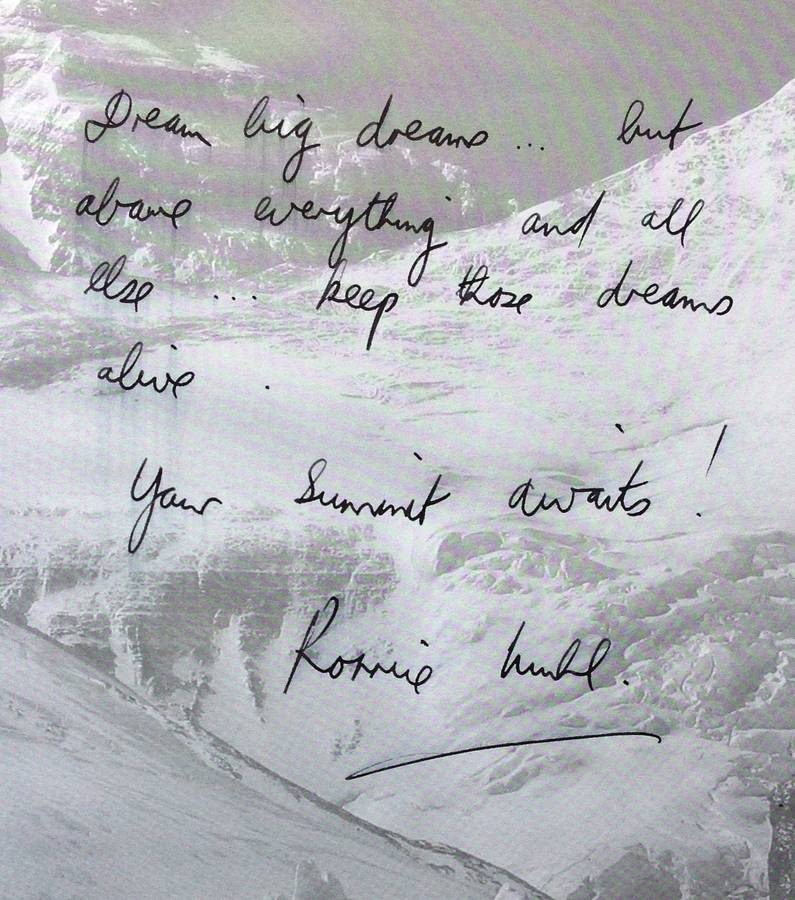 Dream big dreams ... but
above everything and all
else ... keep those dreams
alive .
Your Summit awaits !
Ronnie Muhl.